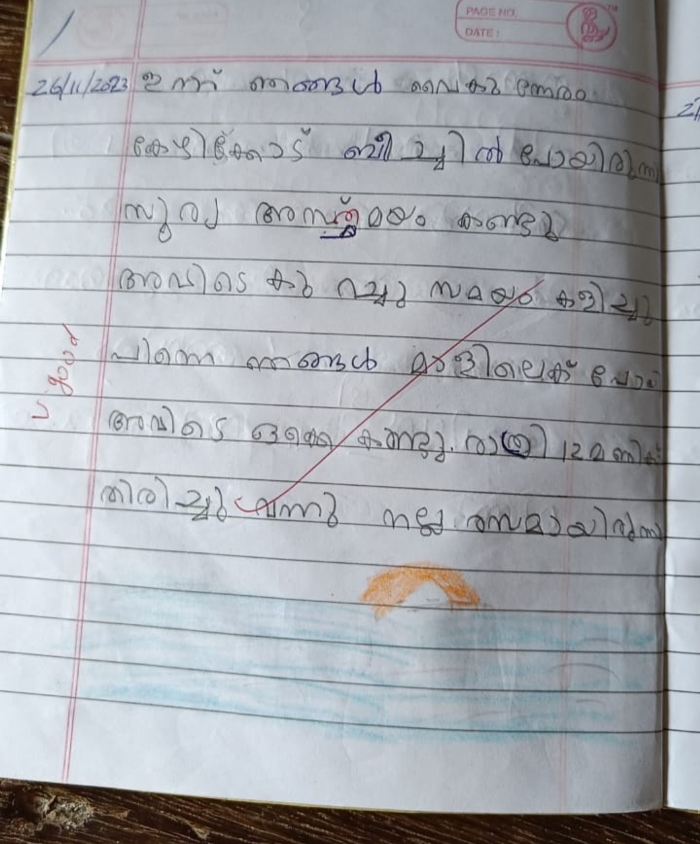 PAGE NO.
DATE:
26/11/2023 ഇന്ന് ഞങ്ങൾ വൈകു ന്നേരം
കോഴിക്കോട് ബീച്ചിൽ പോയിരുന്നു
സൂര്യ അസ്തമയം കണ്ടു
അവിടെ കുറച്ചു സമയം കളിച്ചു
പിന്നെ ഞങ്ങൾ മാളിലെക് പോയി
അവിടെ ഒക്കെ കണ്ടു. രാത്രി 12 മണിക്
തിരിച്ചു വന്നു നല്ല രസമായിരുന്നു
v. good